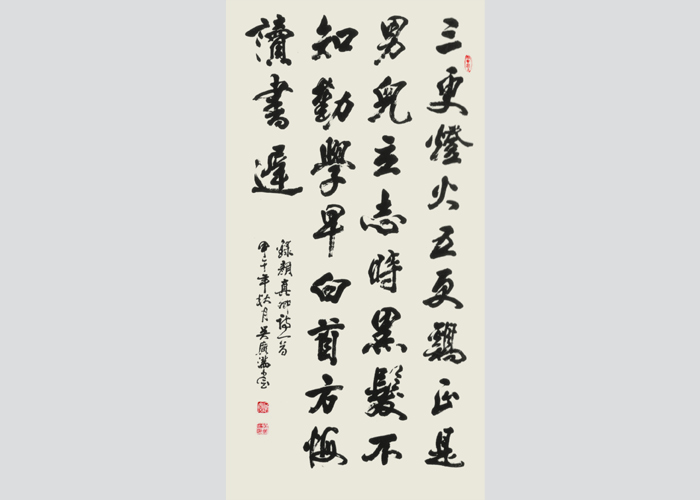 三更燈火五更鷄正是
男兒立志時黑髮不
知勤學早白首方悔
讀書遲
錄顏真卿詩一首
甲午年秋月吳廣